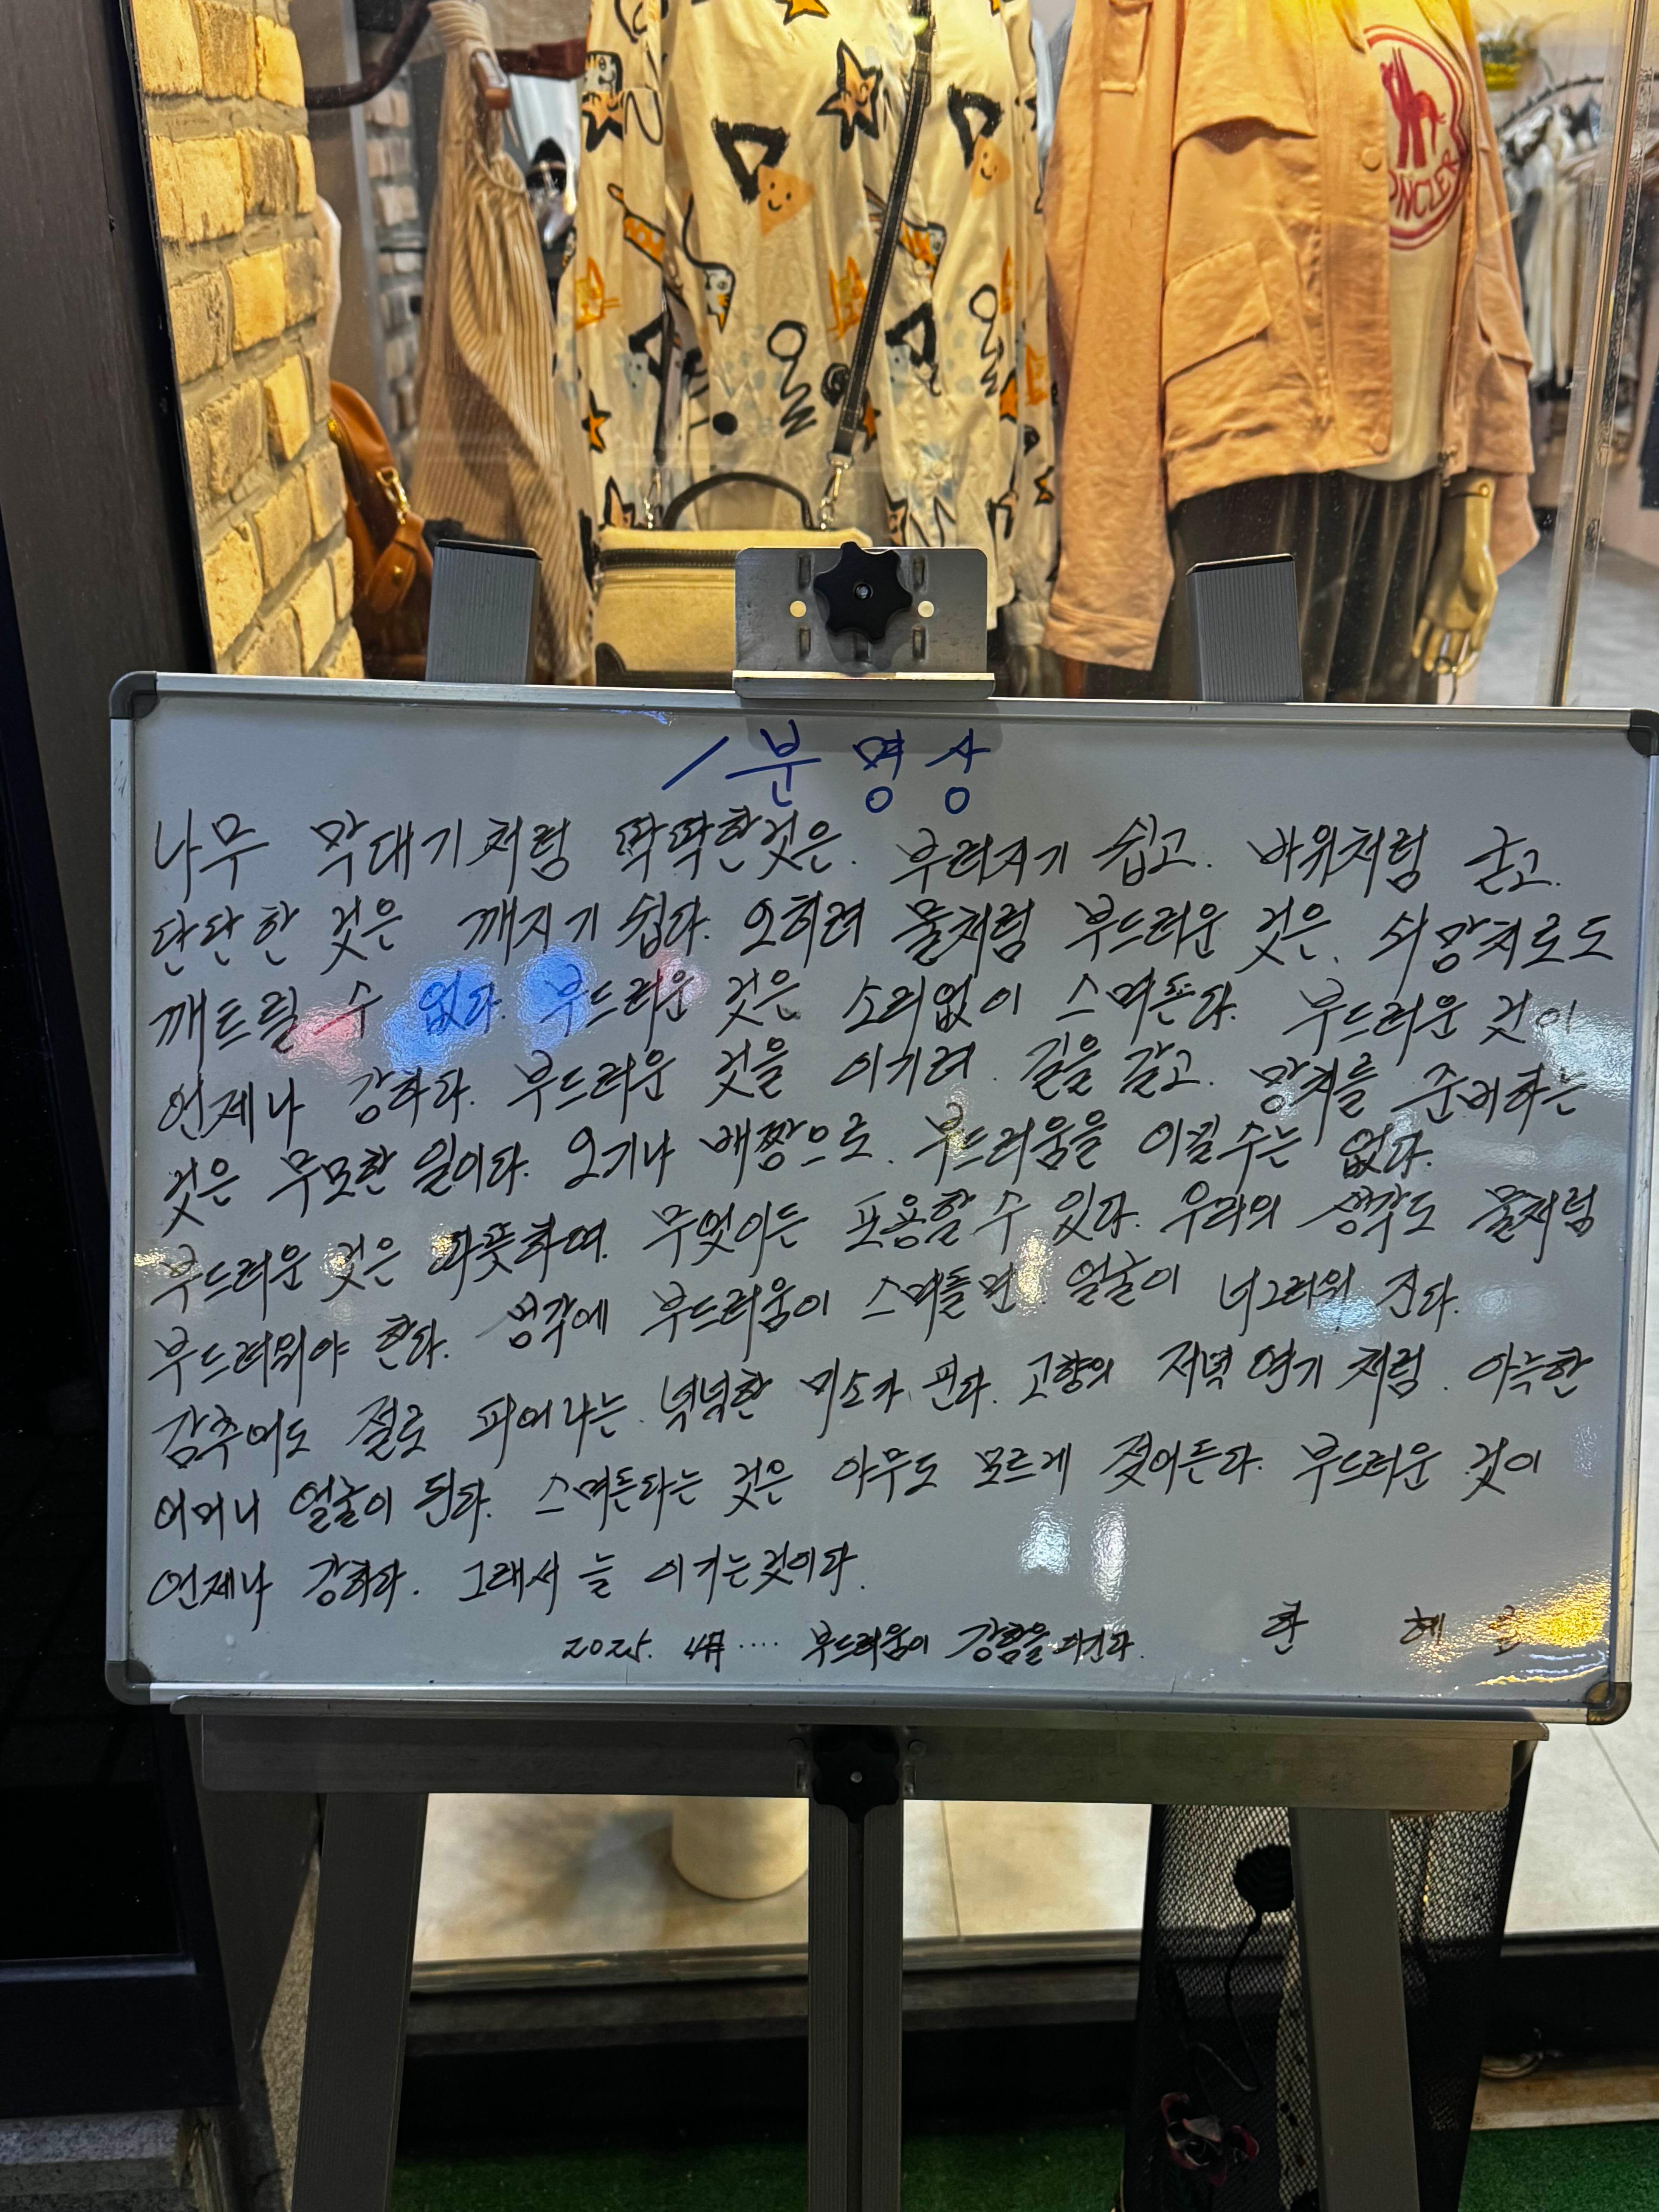 MONCLER
1분 명상
나무 막대기처럼 딱딱한것은. 부러지기 쉽고. 바위처럼 굳고.
단단한 것은 깨지기 쉽다. 오히려 물처럼 부드러운 것은. 쇠망치로도
깨트릴 수 없다. 부드러운 것은 소리없이 스며든다. 부드러운 것이
언제나 강하다. 부드러운 것을 이기려 길을 갈고. 망치를 준비하는
것은 무모한 일이다. 오기나 배짱으로. 부드러움을 이길수는 없다.
부드러운 것은 따뜻하며. 무엇이든 포용할 수 있다. 우리의 생각도 물처럼
부드러워야 한다. 생각에 부드러움이 스며들면 얼굴이 너그러워 진다.
감추어도 절로 피어나는 넉넉한 미소가 핀다. 고향의 저녁 연기 처럼. 아늑한
어머니 얼굴이 된다. 스며든다는 것은 아무도 모르게 젖어든다. 부드러운 것이
언제나 강하다. 그래서 늘 이기는것이다.
2025. 4月 .... 부드러움이 강함을 이긴다.